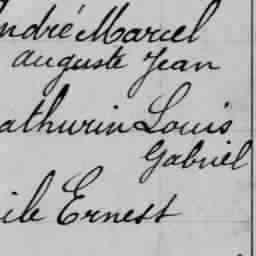 ndré Marcel
Auguste Jean
athurin Louis
Gabriel
ile Ernest